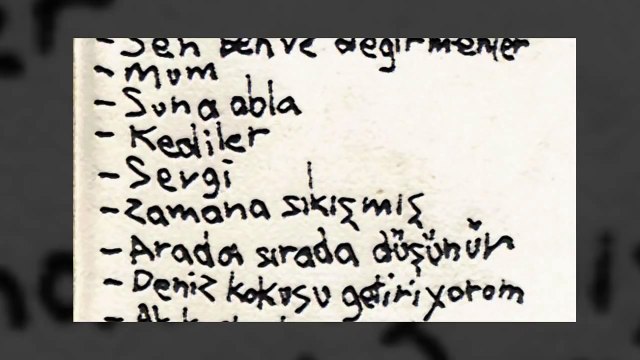 - Sen ben ve değirmenler
- mum
- Suna abla
- Kediler
- Sergi
- Zamana sıkışmış
- Arada sırada düşünür
- Deniz kokusu getiriyorom